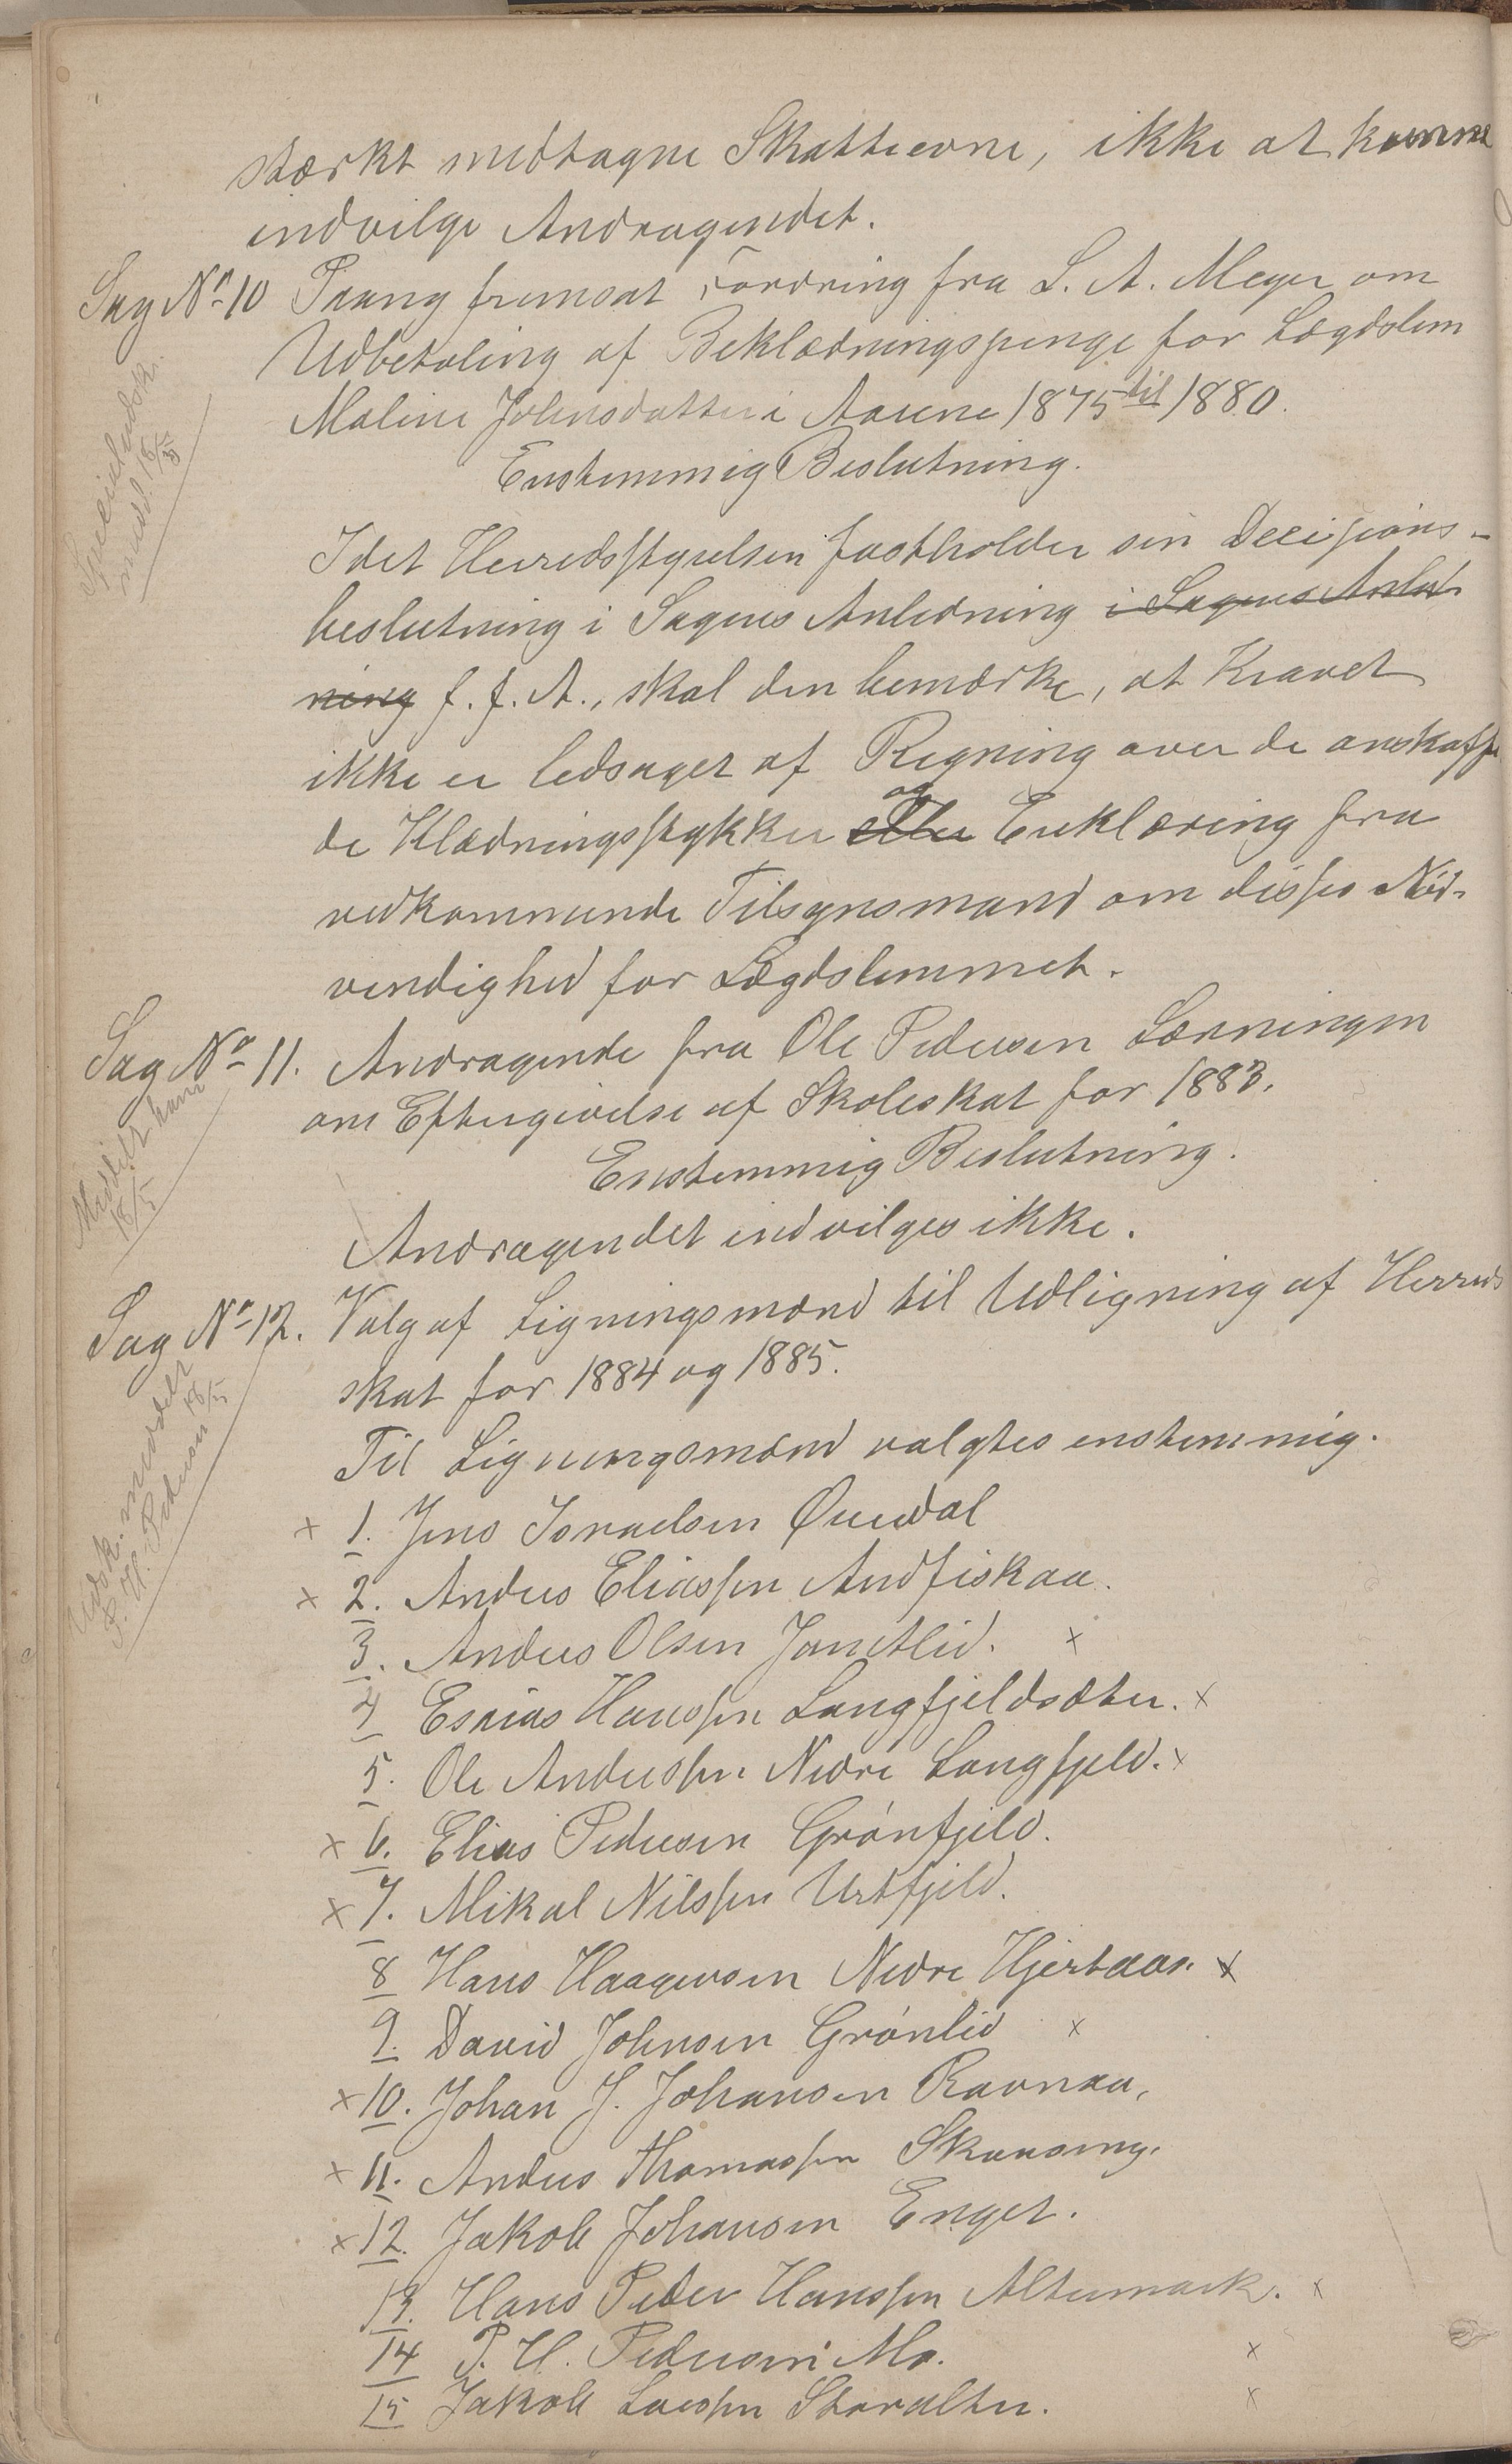 stærkt medtagne Skatteevne, ikke at kunne
indvilge Andragendet.
Sag No 10 Paany fremsat Fordring fra L. A. Meyer om
Udbetaling af Beklædningspenge for Lægdslem
Maline Johnsdatter i Aarene 1875 til 1880.
Enstemmig Beslutning.
Idet Herredsstyrelsen fastholder sin Decisions-
beslutning i Sagens Anledning i Sagens Anled
ning f. f. A., skal den bemærke, at Kravet
ikke er ledsaget af Regning over de anskaffe
de Klædningsstykker eller og Erklæring fra
vedkommende Tilsynsmand om disses Nød-
vendighed for Lægdslemmet.
Sag No 11. Andragende fra Ole Pedersen Lænningen
om Eftergivelse af Skoleskat for 1883.
Meddelt ham
18/5
Enstemmig Beslutning.
Andragendet indvilges ikke.
Sag No 12. Valg af Ligningsmænd til Udligning af Herreds
skat for 1884 og 1885.
Udsk. meddelt
P. H. Pedersen 18/5
Til Ligningsmænd valgtes enstemmig.
x 1. Jens Israelsen
x 2. Anders Eliassen Andfiskaa.
3. Anders Olsen Jamtlid. x
4 Esaias Hanssen Langfjeldsæter. x
5. Ole Anderssen Nedre Langfjeld. x
x 6. Elias Pedersen Grønfjeld.
x 7. Mikal Nilssen Urtfjeld.
8 Hans Haagensen Nedre Hjertaas. x
9. David Johnsen Grønlid x
x 10. Johan J. Johansen Ravnaa,
x 11. Anders Thomassen Skansing.
x 12. Jakob Johansen Enget.
13. Hans Peder Hanssen Altermark. x
14 P. H. Pedersen Mo. x
15 Jakob Larssen Storalter. x